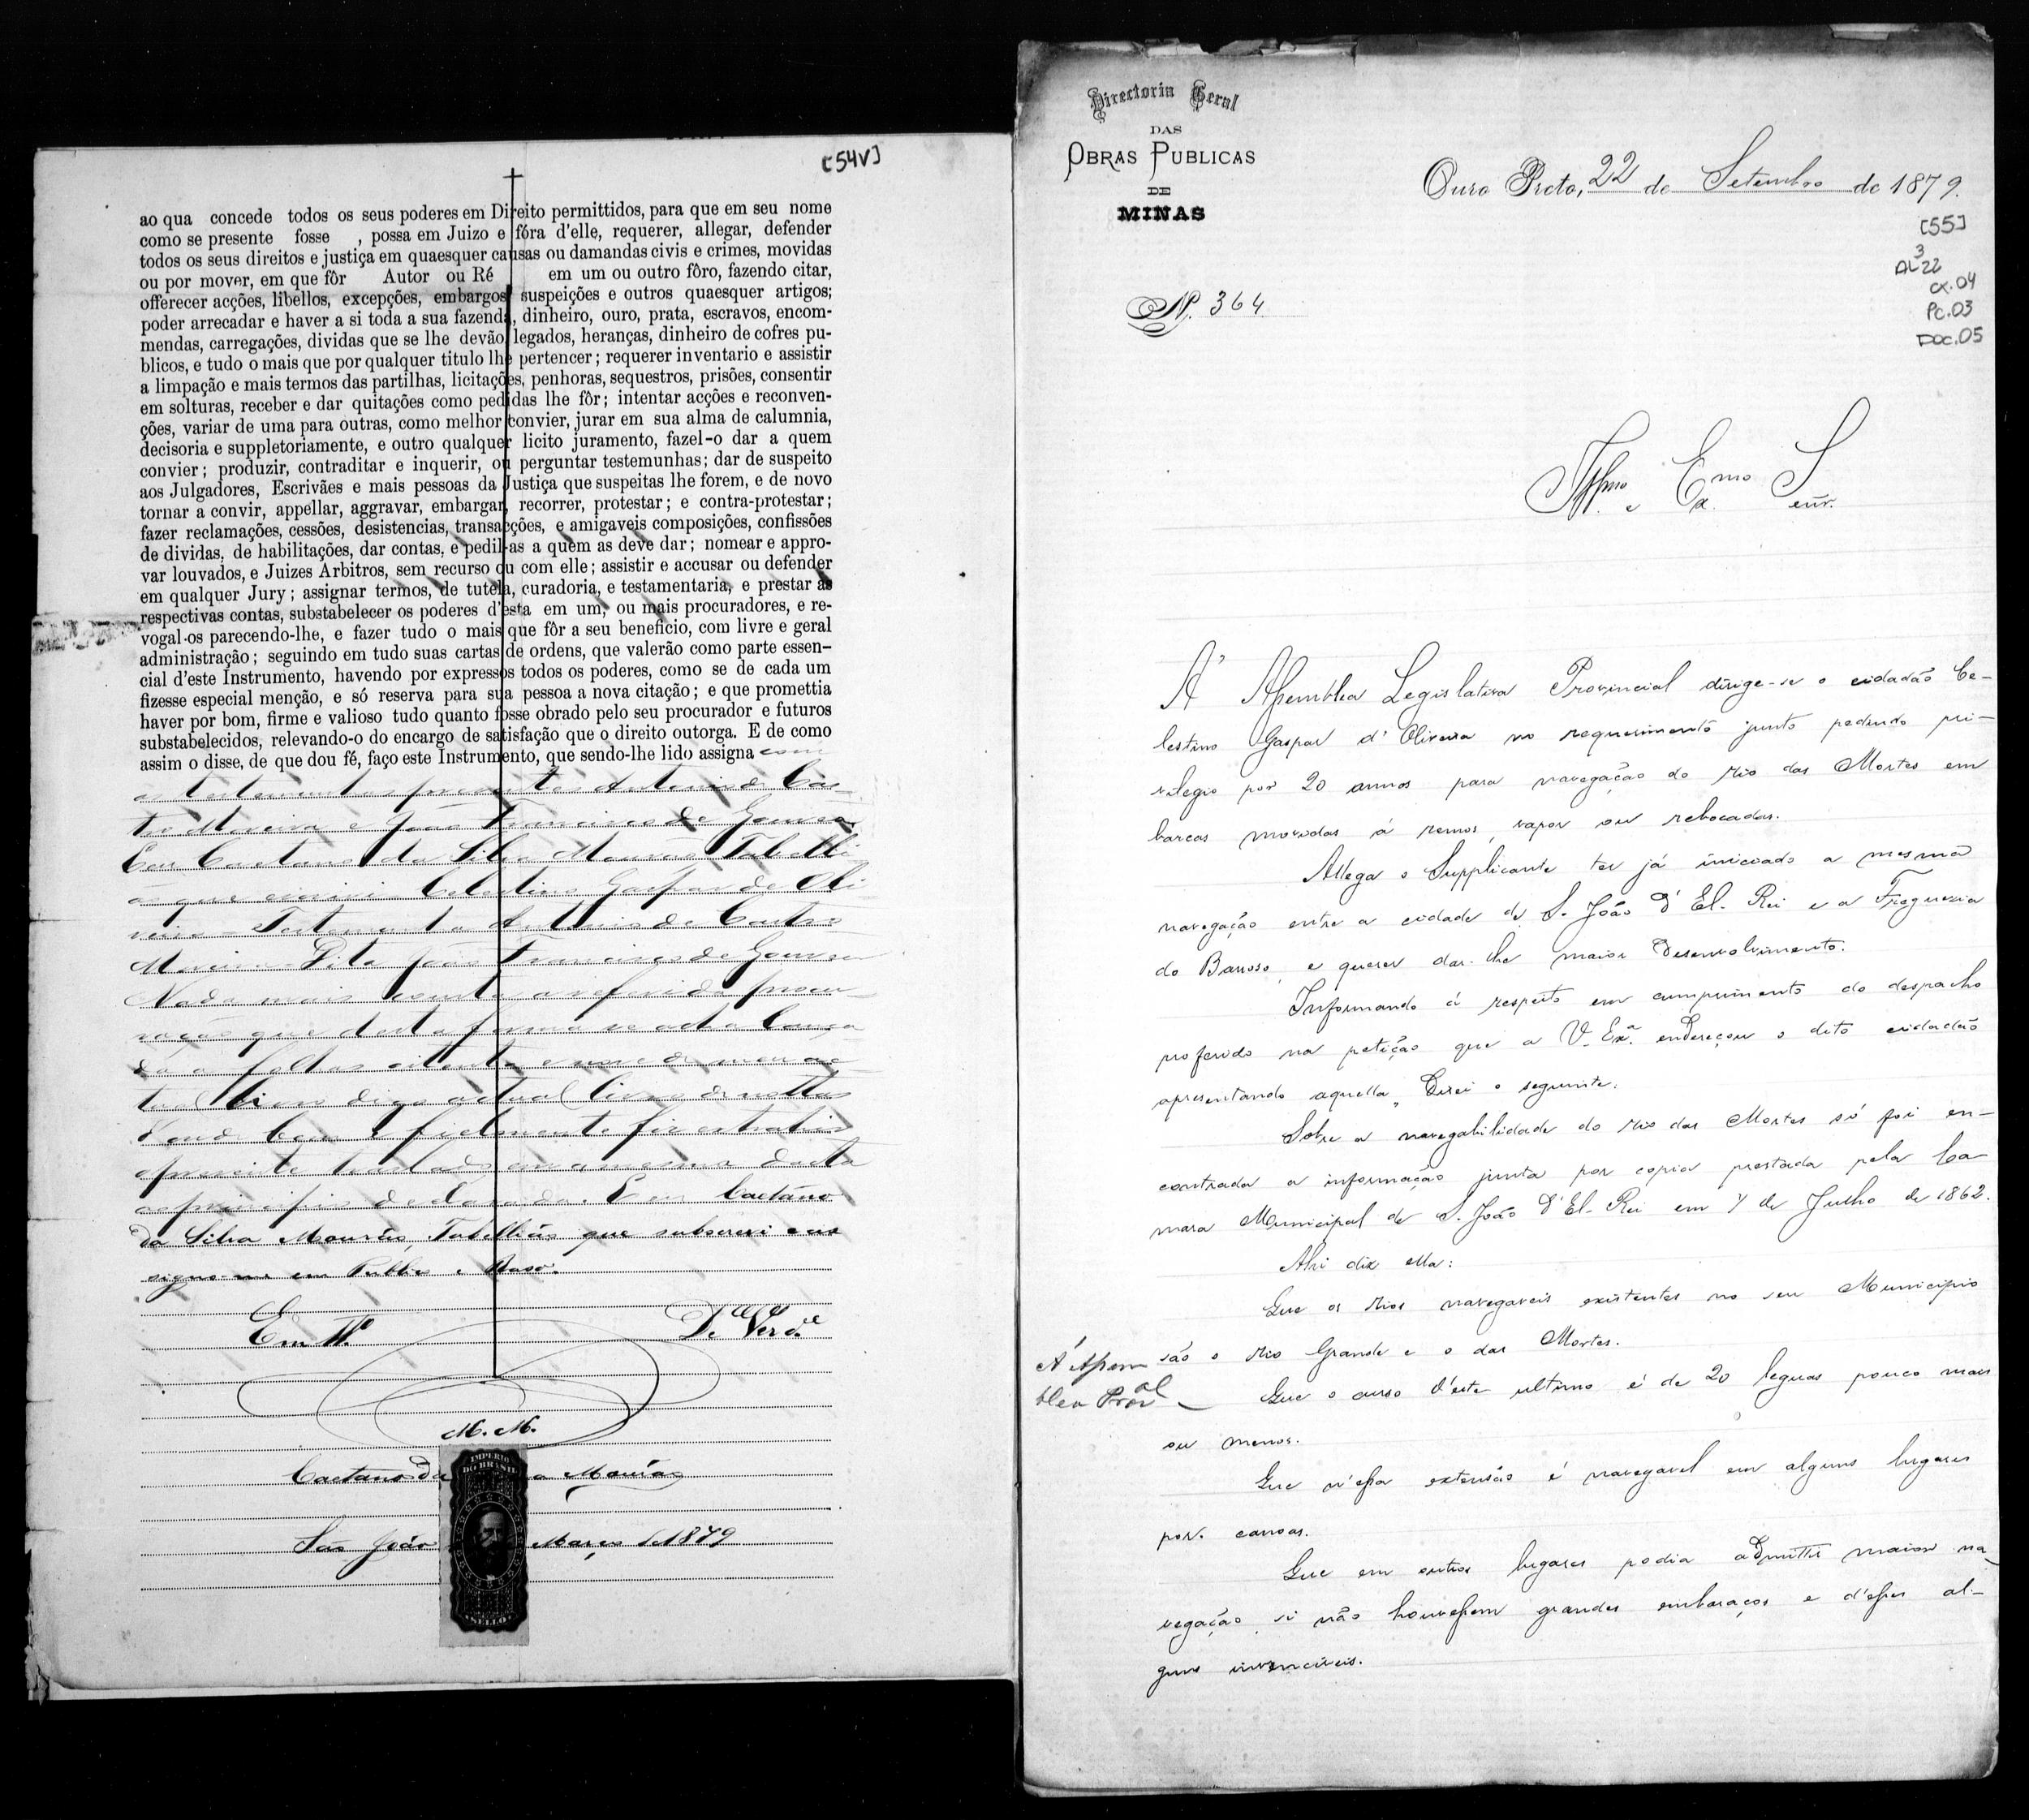 [54V]
ao qua concede todos os seus poderes em Direito permittidos, para que em seu nome
como se presente fosse , possa em Juizo e fóra d'elle, requerer, allegar, defender
todos os seus direitos e justiça em quaesquer causas ou damandas civis e crimes, movidas
ou por mover, em que fôr Autor ou Ré em um ou outro fôro, fazendo citar,
offerecer acções, libellos, excepções, embargos, suspeições e outros quaesquer artigos;
poder arrecadar e haver a si toda a sua fazenda, dinheiro, ouro, prata, escravos, encom-
mendas, carregações, dividas que se lhe devão, legados, heranças, dinheiro de cofres pu-
blicos, e tudo o mais que por qualquer titulo lhe pertencer; requerer inventario e assistir
a limpação e mais termos das partilhas, licitações, penhoras, sequestros, prisões, consentir
em solturas, receber e dar quitações como pedidas lhe fôr; intentar acções e reconven-
ções, variar de uma para outras, como melhor convier, jurar em sua alma de calumnia,
decisoria e suppletoriamente, e outro qualquer licito juramento, fazel-o dar a quem
convier; produzir, contraditar e inquerir, ou perguntar testemunhas; dar de suspeito
aos Julgadores, Escrivães e mais pessoas da Justiça que suspeitas lhe forem, e de novo
tornar a convir, appellar, aggravar, embargar, recorrer, protestar; e contra-protestar;
fazer reclamações, cessões, desistencias, transacções, e amigaveis composições, confissões
de dividas, de habilitações, dar contas, e pedil-as a quem as deve dar; nomear e appro-
var louvados, e Juizes Arbitros, sem recurso ou com elle; assistir e accusar ou defender
em qualquer Jury; assignar termos, de tutela, curadoria, e testamentaria, e prestar as
respectivas contas, substabelecer os poderes d'esta em um, ou mais procuradores, e re-
vogal-os parecendo-lhe, e fazer tudo o mais que fôr a seu beneficio, com livre e geral
administração; seguindo em tudo suas cartas de ordens, que valerão como parte essen-
cial d'este Instrumento, havendo por expressos todos os poderes, como se de cada um
fizesse especial menção, e só reserva para sua pessoa a nova citação; e que promettia
haver por bom, firme e valioso tudo quanto fosse obrado pelo seu procurador e futuros
substabelecidos, relevando-o do encargo de satisfação que o direito outorga. E de como
assim o disse, de que dou fé, faço este Instrumento, que sendo-lhe lido assigna com
as testemunhas presentes Antonio de Cas-
tro Moreira e João Francisco de Gouvea
Eu Caetano da Silva Mourão Tabelli
ão que escrivi Celestino Gaspar de Oli
veira - Testemunha Antonio de Castro
Moreira - Dita João Francisco de Gouvea
Nada mais consta a referida procu-
ração que desta forma se acha lança
da a folhas oitenta e nove de meu ac
tual livro digo actual livro de nottas
d'onde bem e fielmente fiz extrahir
o presente traslado em a mesma dacta
ao principio declarada. E eu Caetano
da Silva Mourão, Tabellião que subscrevi e as
signo-me em Publico e Raso.
Em Tto. De Verde.
M. M.
Caetano da a Mourão
IMPERIO
DO BRASIL
SELLO
São João Março de 1879
Directoria Geral
DAS
OBRAS PUBLICAS
DE
MINAS
Ouro Preto, 22 de Setembro de 1879.
[55]
AL 3 22
cx.04
Pc.03
Doc.05
N. 364
Illmo. e Exmo. Senr.
A' Assemblea Legislativa Provincial dirige-se o cidadão Ce-
lestino Gaspar d'Oliveira no requerimento junto pedindo pri-
vilegio por 20 annos para navegação do Rio das Mortes em
barcas movidas á remos, vapor ou rebocadas.
Allega o Supplicante ter já iniciado a mesma
navegação entre a cidade de S. João d'El-Rei e a Freguezia
do Barroso, e querer dar-lhe maior desenvolvimento.
Informando á respeito em cumprimento do despacho
proferido na petição que a V. Exa. endereçou o dito cidadão
apresentando aquella, direi o seguinte:
Sobre a navegabilidade do Rio das Mortes só foi en-
contrada a informação junta por copia prestada pela Ca
mara Municipal de S. João d'El-Rei em 7 de Julho de 1862.
Ahi diz ella:
Que os Rios navegaveis existentes no seu Municipio
são o Rio Grande e o das Mortes.
A' Assem
blea Proval
Que o curso d'este ultimo é de 20 leguas pouco mais
ou menos.
Que n'essa extensão é navegavel em alguns lugares
por canoas.
Que em outros lugares podia admittir maior na
vegação, si não houvessem grandes embaraços e d'esses al-
guns invenciveis.